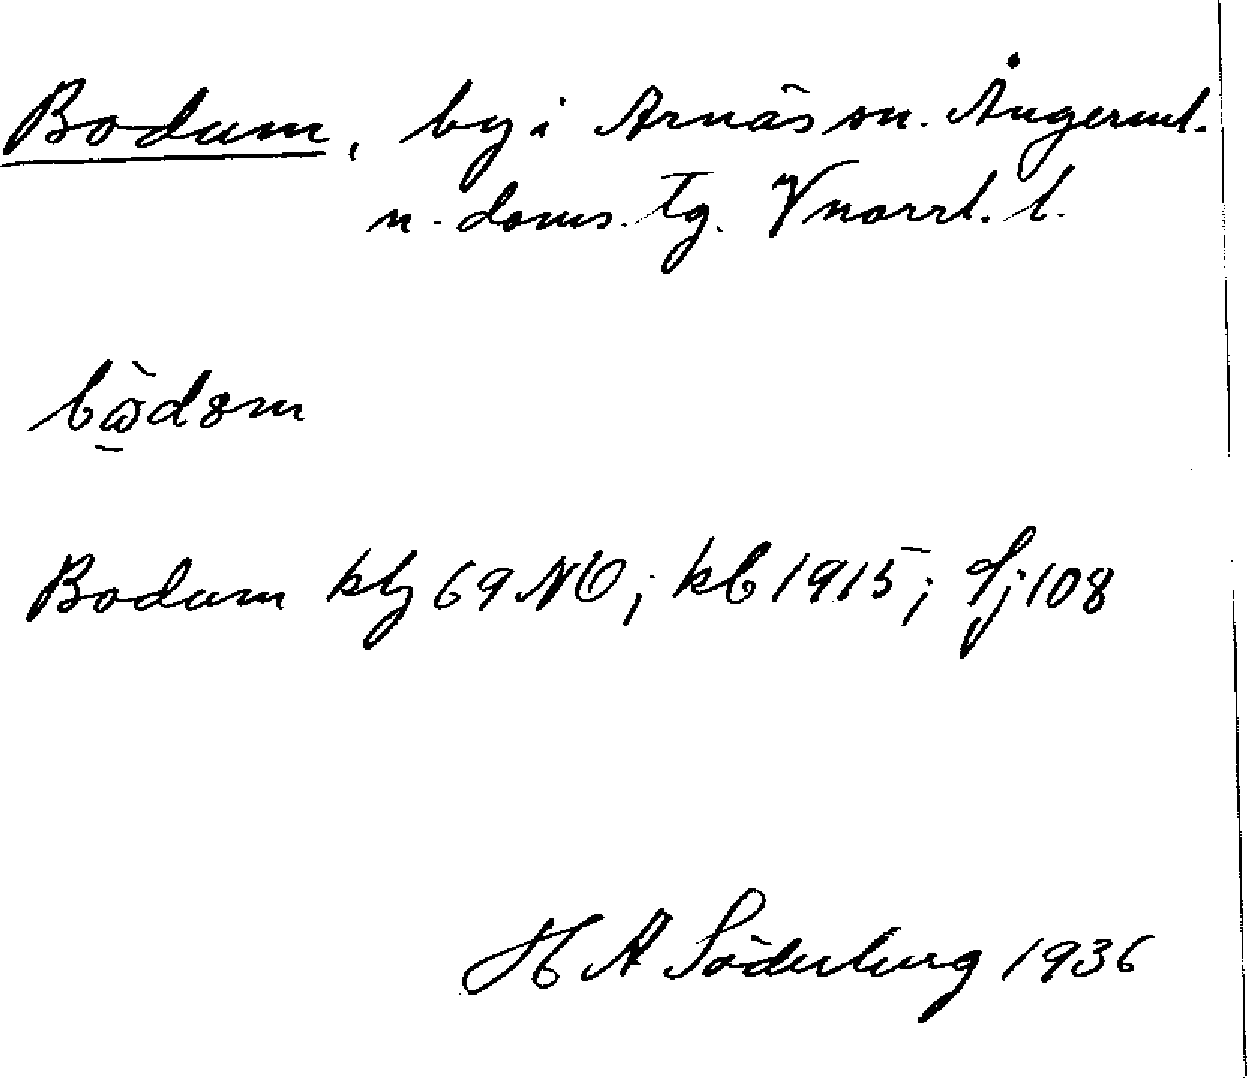 Bodum, by i Arnäs sn. Ångerml.
n. doms. tg. Vnorrl. l.
bὼdɞm
Bodum kbg 69 NO; kb 1915; Sj 108
H A Söderberg 1936